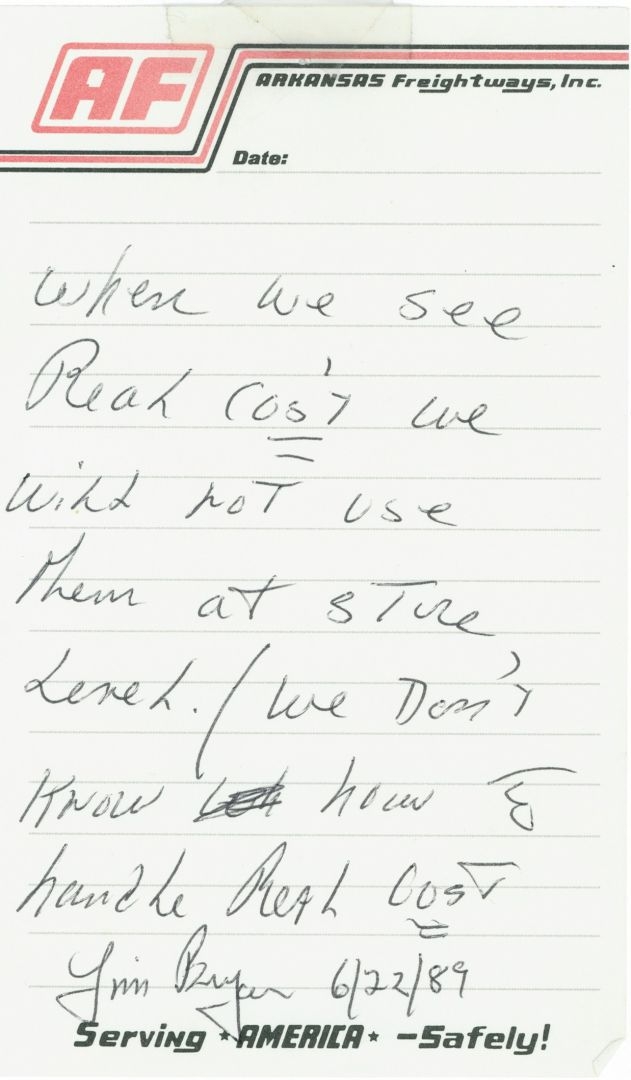 AF
ARKANSAS Freightways, Inc.
Date:
when we see
Real Cos't we
will not use
them at store
Level. / we Don't
Know how to
handle Real Cost
Jim Bryan 6/22/89
Serving *AMERICA* -Safely!